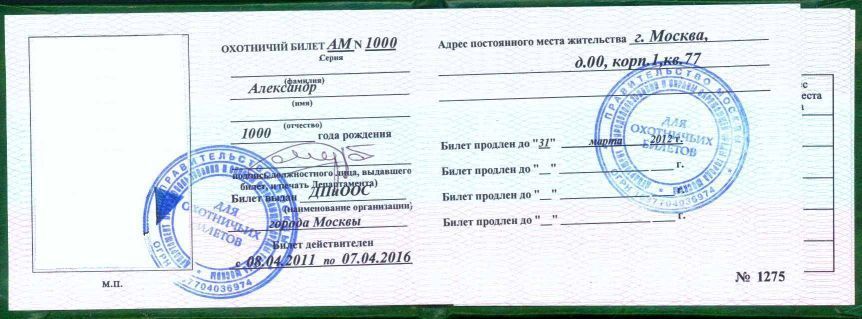 ОХОТНИЧИЙ БИЛЕТ АМ N 1000
Серия
(фамилия)
Александр
(имя)
(отчество)
1000 года рождения
подпись должностного лица, выдавшего
билет, и печать Департамента)
Билет выдан ДПиООС
(наименование организации)
города Москвы
Билет действителен
с 08.04.2011 по 07.04.2016
М.П.
ПРАВИТЕЛЬСТВО МОСКВЫ
ДЛЯ
ОХОТНИЧЬИХ
БИЛЕТОВ
ОГРН 37704036974
Адрес постоянного места жительства г. Москва,
д.00, корп.1,кв.77
ПРАВИТЕЛЬСТВО МОСКВЫ
ДЛЯ
ОХОТНИЧЬИХ
БИЛЕТОВ
Билет продлен до "31" марта 2012 г.
Билет продлен до "__" ____ г.
Билет продлен до "__" ____ г.
Билет продлен до "__" ____ г.
№ 1275